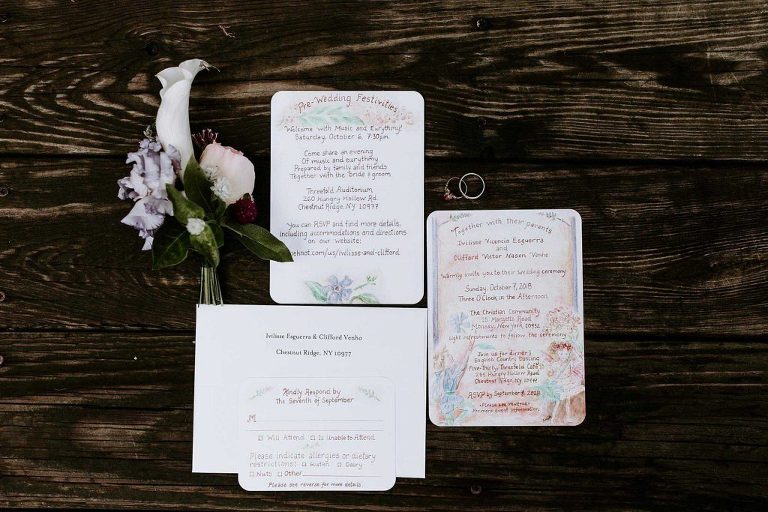 Pre-Wedding Festivities
Welcome with Music and Eurythmy!
Saturday, October 6, 7:30pm
Come share an evening
Of music and eurythmy
Prepared by family and friends
Together with the bride & groom
Threefold Auditorium
260 Hungry Hollow Rd.
Chestnut Ridge, NY 10977
You can RSVP and find more details,
including accommodations and directions
on our website:
theknot.com/us/ivilisse-and-clifford
Together with their parents
Ivilisse Esguerra
and
Clifford Venho
Warmly invite you to their wedding ceremony
Sunday, October 7, 2018
Three O'Clock in the Afternoon
The Christian Community
15 Margetts Road
Monsey, New York 10952
Light refreshments to follow the ceremony
Join us for dinner &
English Country Dancing
Five-thirty, Threefold Café
285 Hungry Hollow Road
Chestnut Ridge, NY 10977
RSVP by September 7, 2018
Please see reverse
for more event information
Ivilisse Esguerra & Clifford Venho
Chestnut Ridge, NY 10977
Kindly Respond by
the Seventh of September
M
Will Attend Unable to Attend
Please indicate allergies or dietary
restrictions: Gluten Dairy
Nuts Other
Please see reverse for more details